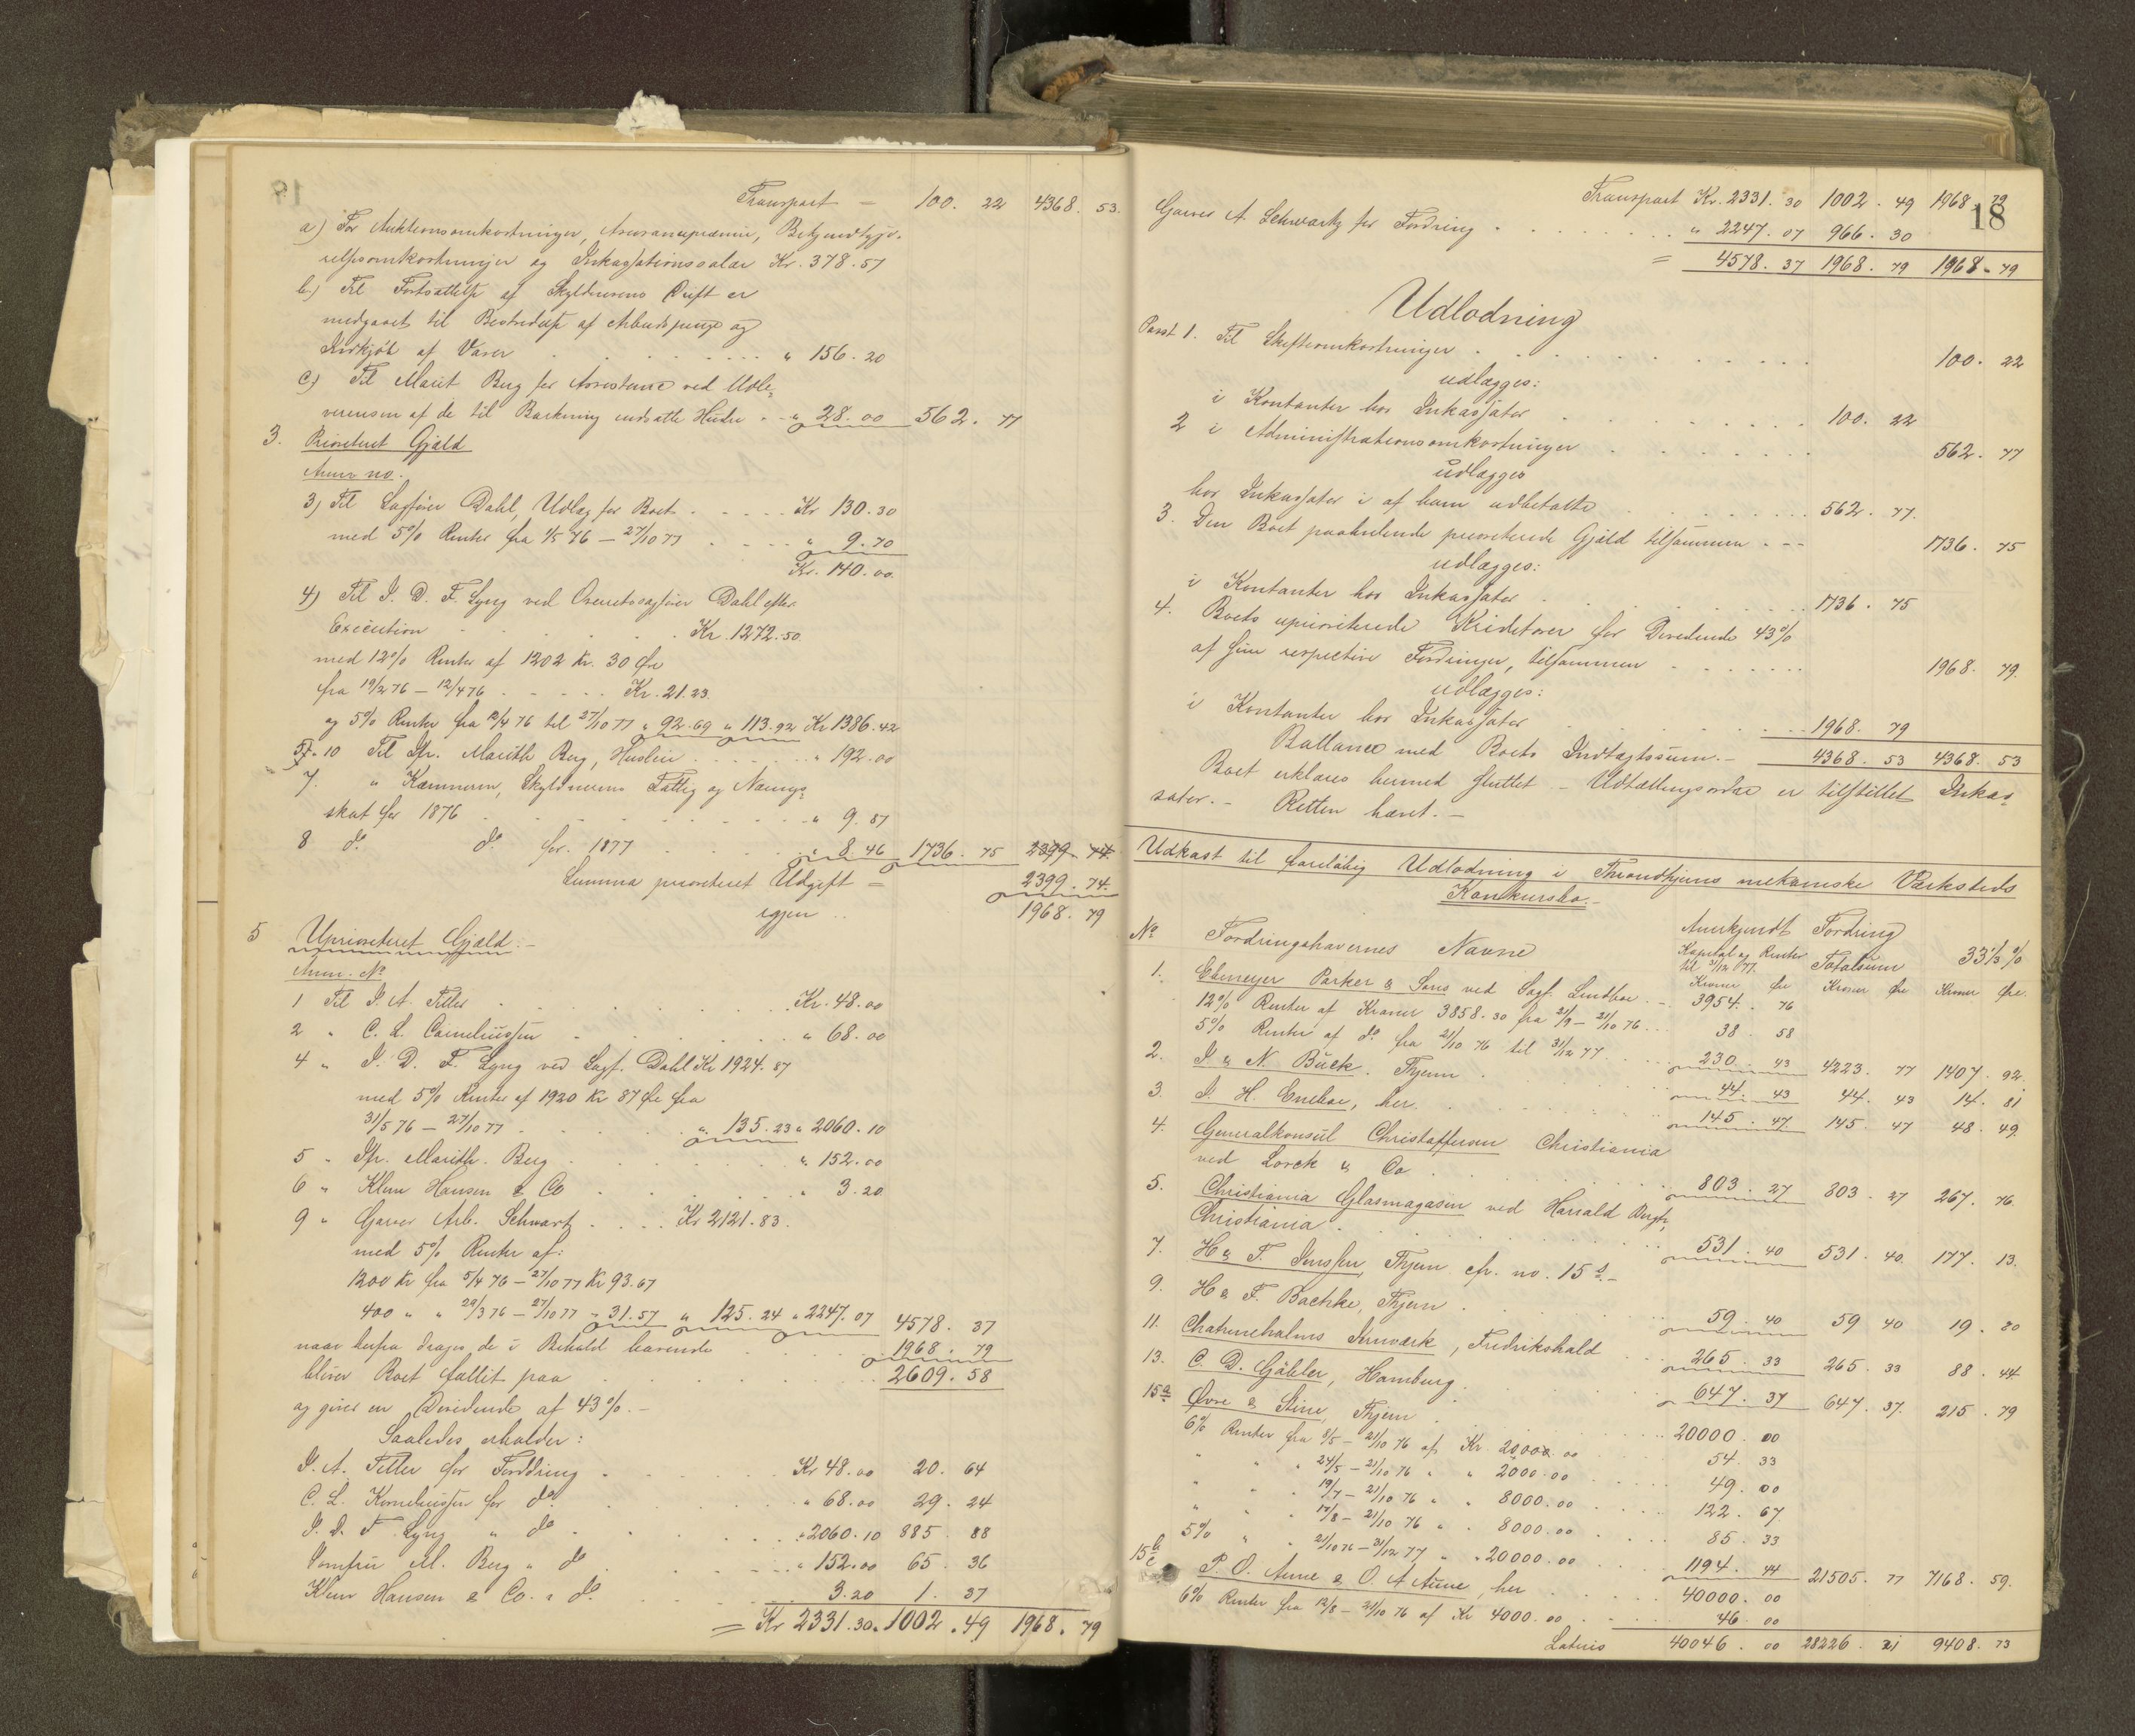 Transport = 100. 22 4368. 53.
a) For Auktionsomkostninger, Assurancepræmie, Bekjendtgjø-
relsesomkostninger og Inkassationssalær Kr. 378.57
b) Til Fortsættelse af Skyldnerens Drift er
medgaaet til Bestridelse af Arbeidspenge og
Indkjøb af Varer . . . . . " 156.20
c) Til Marit Berg for Assistance ved Udle-
verensen af de til Barkning indsatte Huder . . " 28.00 562. 77
3. Prioriteret Gjæld
Anm. no.
3) Til Sagfører Dahl, Udlæg for Boet . . . . Kr 130.30
med 5% Renter fra 1/5 76 – 27/10 77 . . . " 9.70
Kr. 140.00.
4) Til I. D. F. Lyng ved Overretssagfører Dahl efter
Execution . . . . . . Kr. 1272.50
med 12% Renter af 1202 Kr. 30 Øre
fra 19/2 76 – 12/4 76 . . . . . Kr. 21.23.
og 5% Renter fra 12/4 76 til 27/10 77 " 92.69 " 113.92 Kr 1386.42
5. 10 Til Jfr. Marith Berg, Husleie . . . . . . " 192.00
7. " Kæmneren, Skyldnerens Fattig og Nærings-
skat for 1876 . . . . . . " 9.87
8 do do for. 1877 . . . . . " 8.46 1736. 75 2399. 74.
Summa prioriteret Udgift = 2399. 74.
igjen .. 1968. 79
5 Uprioriteret Gjæld:-
Anm. No
1 Til I. A. Teller . . . . . . Kr. 48.00
2 " C. L. Corneliussen . . . . . " 68.00
4 " I. D. F. Lyng ved Sagf. Dahl Kr 1924.87
med 5% Renter af 1920 Kr 87 Øre fra
31/5 76 – 27/10 77 . . . . . " 135.23 " 2060.10
5 " Jfr. Marith. Berg . . . . . " 152.00
6 " Klem Hansen & Co . . . . . " 3.20
9 " Garver Arb. Schwartz . . . . Kr 2121.83.
med 5% Renter af:
1200 Kr fra 5/4 76 – 27/10 77 Kr 93.67
400 " " 29/3 76 – 27/10 77 " 31.57 " 125.24 " 2247.07 4578. 37
naar herfra drages de i Behold havende . . . . 1968. 79
bliver Boet fallit paa . . . . . . 2609. 58
og giver en Dividende af 43%.-
Saaledes erholder:
I. A. Teller for Fordring . . . . . Kr 48.00 20. 64
C. L. Korneliussen for do . . . . . " 68.00 29. 24
I. D. F Lyng " do . . . . . " 2060.10 885. 88
Jomfru M. Berg " do . . . . . " 152.00 65. 36
Klem Hansen & Co. " do. . . . . . 3.20 1. 37
= Kr 2331.30. 1002. 49 1968. 79
18
Transport Kr. 2331. 30 1002. 49 1968. 79
Garver A. Schwartz for Fordring . . . . . . " 2247. 07 966. 30
= 4578. 37 1968. 79 1968. 79
Udlodning
Post 1. Til Skifteomkostninger . . . . . . 100. 22
udlægges:
i Kontanter hos Inkassator . . . . . . 100. 22
2 i Administrationsomkostninger . . . . . 562. 77
udlægges
hos Inkassator i af ham udbetalte . . . . . 562. 77.
3. Den Boet paahvilende prioriterede Gjæld tilsammen . - - 1736. 75
udlægges:
i Kontanter hos Inkassator . . . . . 1736. 75
4. Boets uprioriterede Kreditorer for Dividende 43%
af sine respective Fordringer, tilsammen . . . . . 1968. 79.
udlægges:
i Kontanter hos Inkassator . . . . . 1968. 79
Ballance med Boets Indtægtssum.- 4368. 53 4368. 53
Boet erklæres hermed sluttet - Udtællingsordre er tilstillet Inkas-
sator.- Retten hævet.-
Udkast til foreløbig Udlodning i Throndhjems mekaniske Værksteds
Konkursbo.-
No Fordringshavernes Navne Anerkjendt Fordring 33⅓%
Kapital og Renter til 31/12 77. Totalsum
Kroner Øre Kroner Øre Kroner Øre.
1. Ebmeyer Parker & Sons ved Sagf. Lindboe . - 3954. 76
12% Renter af Kroner 3858.30 fra 21/9 – 21/10 76 . . . 38. 58
5% Renter af do fra 21/10 76 til 31/12 77 . . . . 230. 43 4223. 77 1407. 92
2. I & N. Buck. Thjem . . . . . 44. 43 44. 43 14. 81
3. I. H. Eneboe, her. . . . . . 145. 47 145. 47 48. 49.
4. Generalkonsul Christoffersen Christiania
ved Lorck & Co . . . . . 803. 27 803. 27 267. 76
5. Christiania Glasmagasin ved Harald Bugge,
Christiania . . . . . 531. 40 531. 40 177. 13.
7. H & T. Jenssen, Thjem cfr. no. 15 d.-
9. H & F. Bachke, Thjem . . . . . 59. 40 59 40 19. 80
11. Chatrineholms Jernværk, Fredrikshald . . 265. 33 265. 33 88. 44
13. C. D. Gäbler, Hamburg . . . . . 647. 37 647. 37. 215. 79
15a Øvre & Stine, Thjem . . . . . 20000. 00
6% Renter fra 8/5 – 21/10 76 af Kr 2000.00 . . . 54. 33
" " " 24/5 – 21/10 76 " " 2000.00 . . . 49. 00
" " " 19/7 – 21/10 76 " " 8000.00 . . . 122. 67
" " " 17/8 – 21/10 76 " " 8000.00 . . . 85. 33
5% " " 21/10 76 – 31/12 77 " " 20000.00 . . 1194. 44 21505. 77 7168. 59.
15 b c P. O. Aune & O. A Aune, her . . . . 40000. 00
6% Renter fra 12/8 – 21/10 76 af Kr 4000.00 . . . 46. 00
Lateris 40046. 00 28226. 21 9408. 73